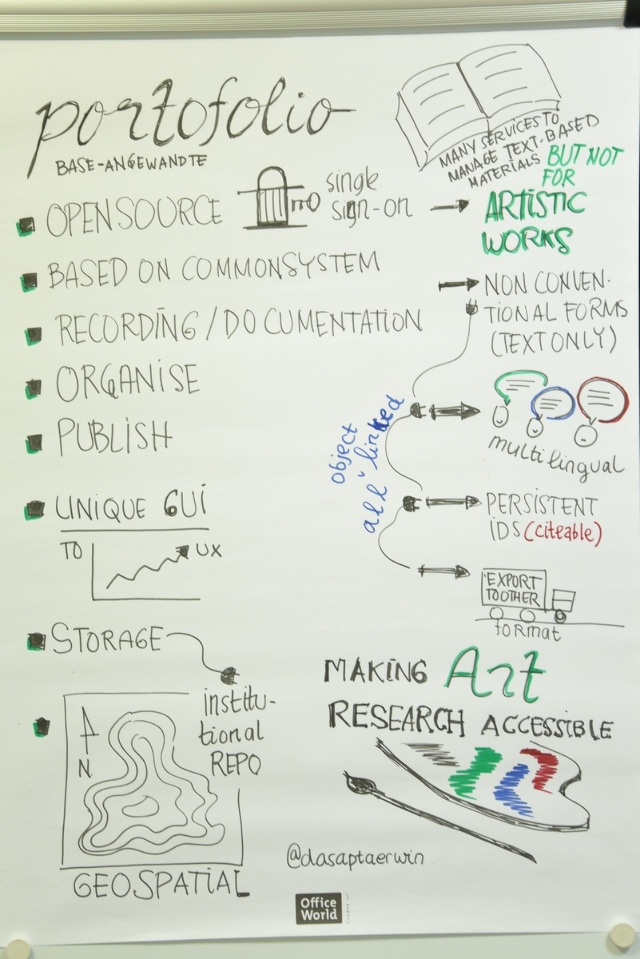 portofolio
BASE-ANGEWANDTE
OPEN SOURCE
single
sign-on
BASED ON COMMONSYSTEM
RECORDING/DOCUMENTATION
ORGANISE
PUBLISH
UNIQUE GUI
TO
UX
STORAGE
institu-
tional
REPO
N
GEOSPATIAL
MANY SERVICES TO
MANAGE TEXT-BASED
MATERIALS BUT NOT
FOR
ARTISTIC
WORKS
NON CONVEN-
TIONAL FORMS
(TEXT ONLY)
multilingual
Object
all linked
PERSISTENT
IDS (citeable)
EXPORT
TO OTHER
format
MAKING Art
RESEARCH ACCESSIBLE
@dasaptaerwin
Office
World